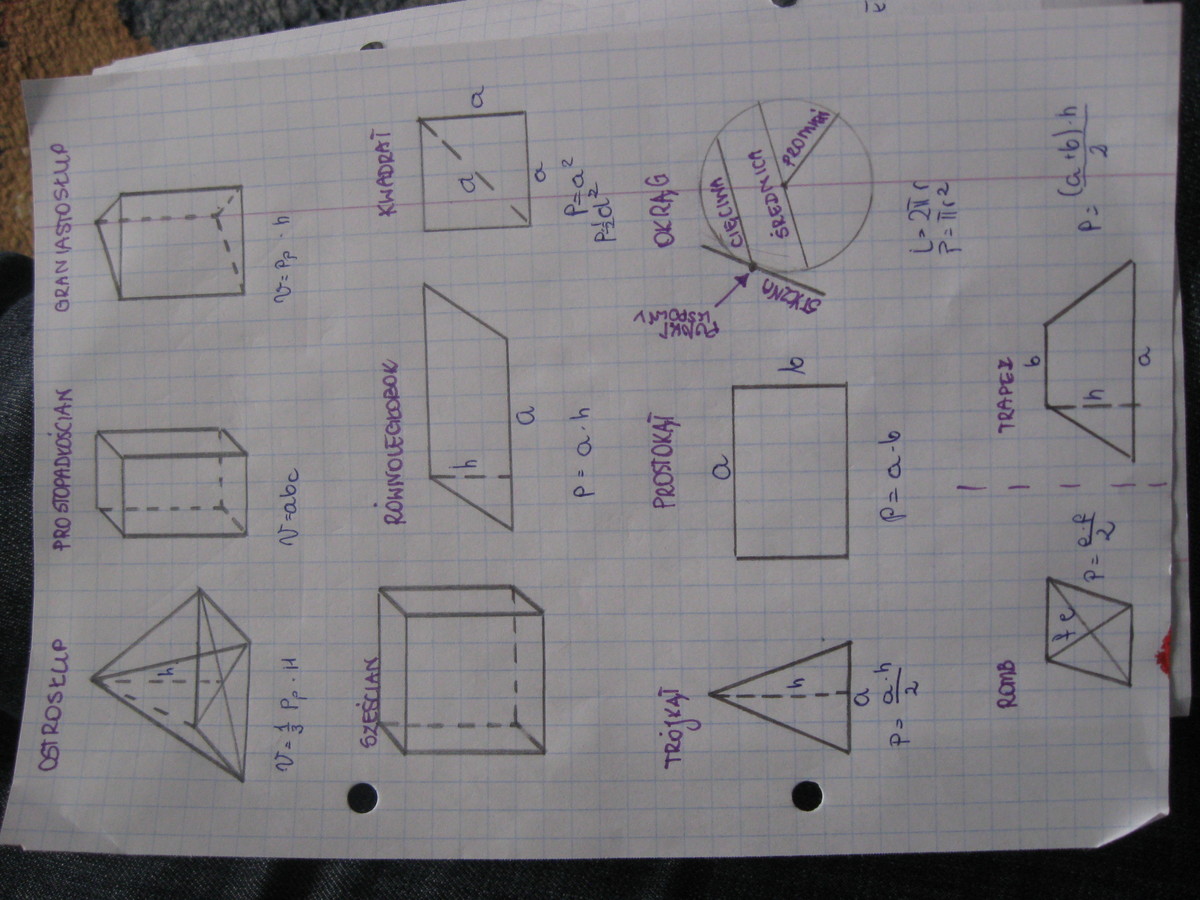 OSTROSŁUP
h
V = 1/3 Pp · H
PROSTOPADŁOŚCIAN
V = abc
GRANIASTOSŁUP
V = Pp · h
SZEŚCIAN
RÓWNOLEGŁOBOK
h
a
P = a · h
KWADRAT
d
a
a
P = a²
P = 1/2 d²
TRÓJKĄT
h
a
P = a · h / 2
PROSTOKĄT
a
b
P = a · b
OKRĄG
CIĘCIWA
ŚREDNICA
PROMIEŃ
STYCZNA
PUNKT
L = 2πr
P = πr²
ROMB
f e
P = e · f / 2
TRAPEZ
b
h
a
P = (a + b) · h / 2